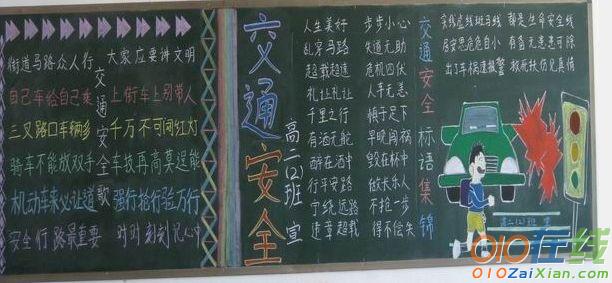 街道马路众人行 大家应要讲文明
自己车给自己乘 上街车上别带人
三叉路口车辆多 千万不可闯红灯
骑车不能放双手 车技再高莫逞能
机动车来必让道 强行抢行验万行
安全行路最重要 时时刻刻记心中
交通安全歌
交通安全
高二(2)班 宣
人生美好 步步小心
乱穿马路 失道无助
超载超速 危机四伏
礼让礼让 人手无恙
千里之行 慎于足下
有酒无舵 早晚闯祸
醉在酒中 毁在杯中
行平安路 做长乐人
宁绕远路 不抢一步
违章超载 得不偿失
交通安全标语集锦
实线虚线斑马线 都是生命安全线
居安思危危自小 有备无患患可除
出了车祸速报警 救死扶伤见真情
高二(2)班 宣
010在线
010ZaiXian.com